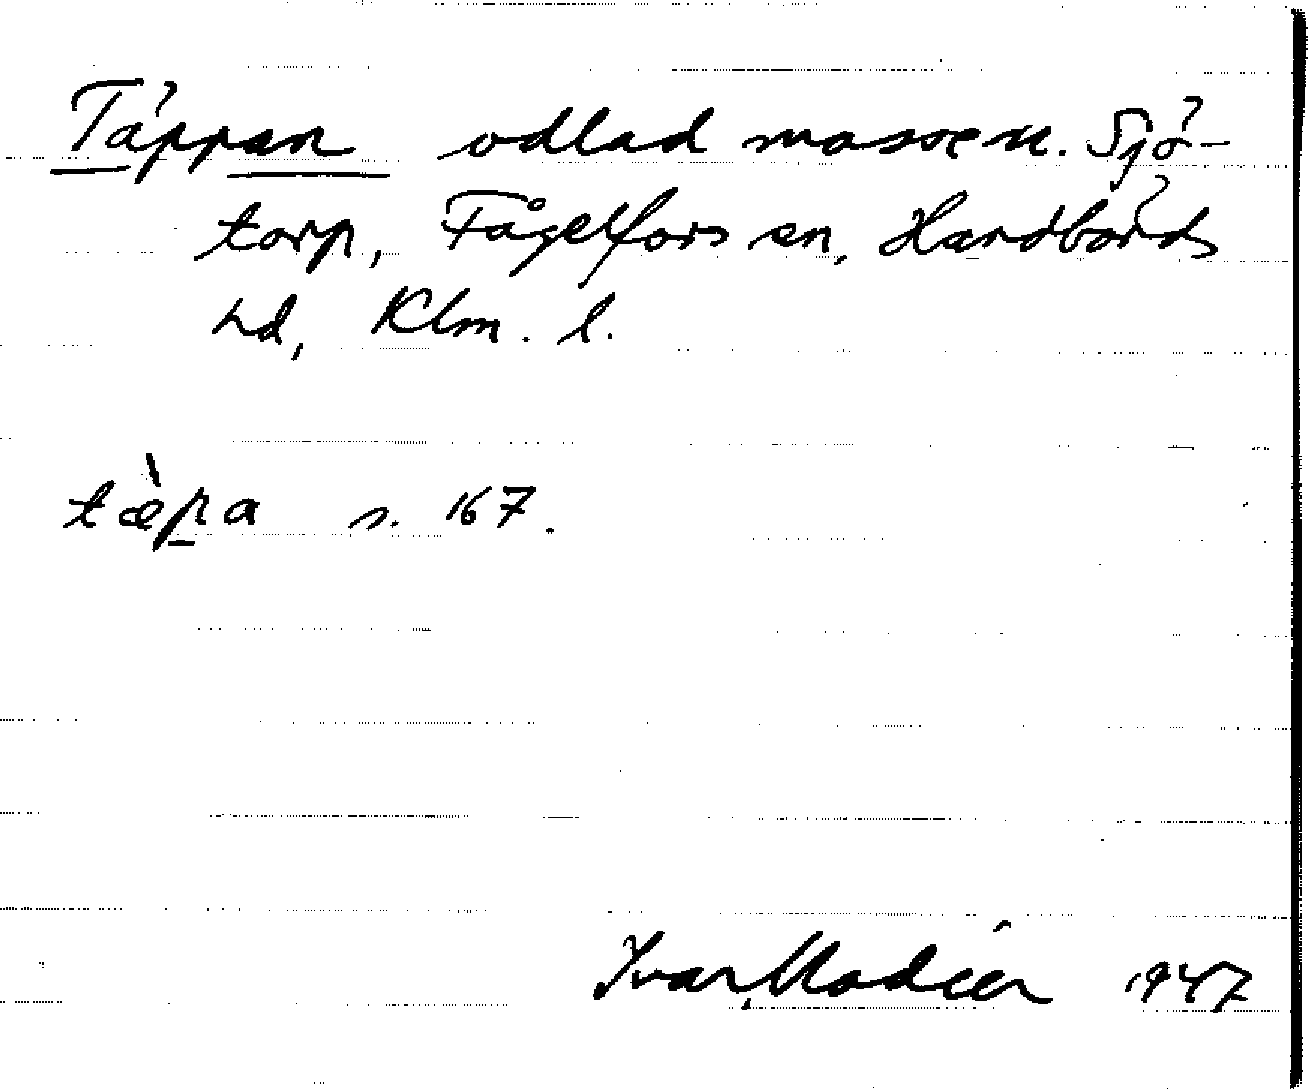 Täppan odlad mosse m. Sjö-
torp, Fågelfors sn, Handbörds
hd, Klm. l.
tæ̀pa s. 167.
Ivar Modéer 1947